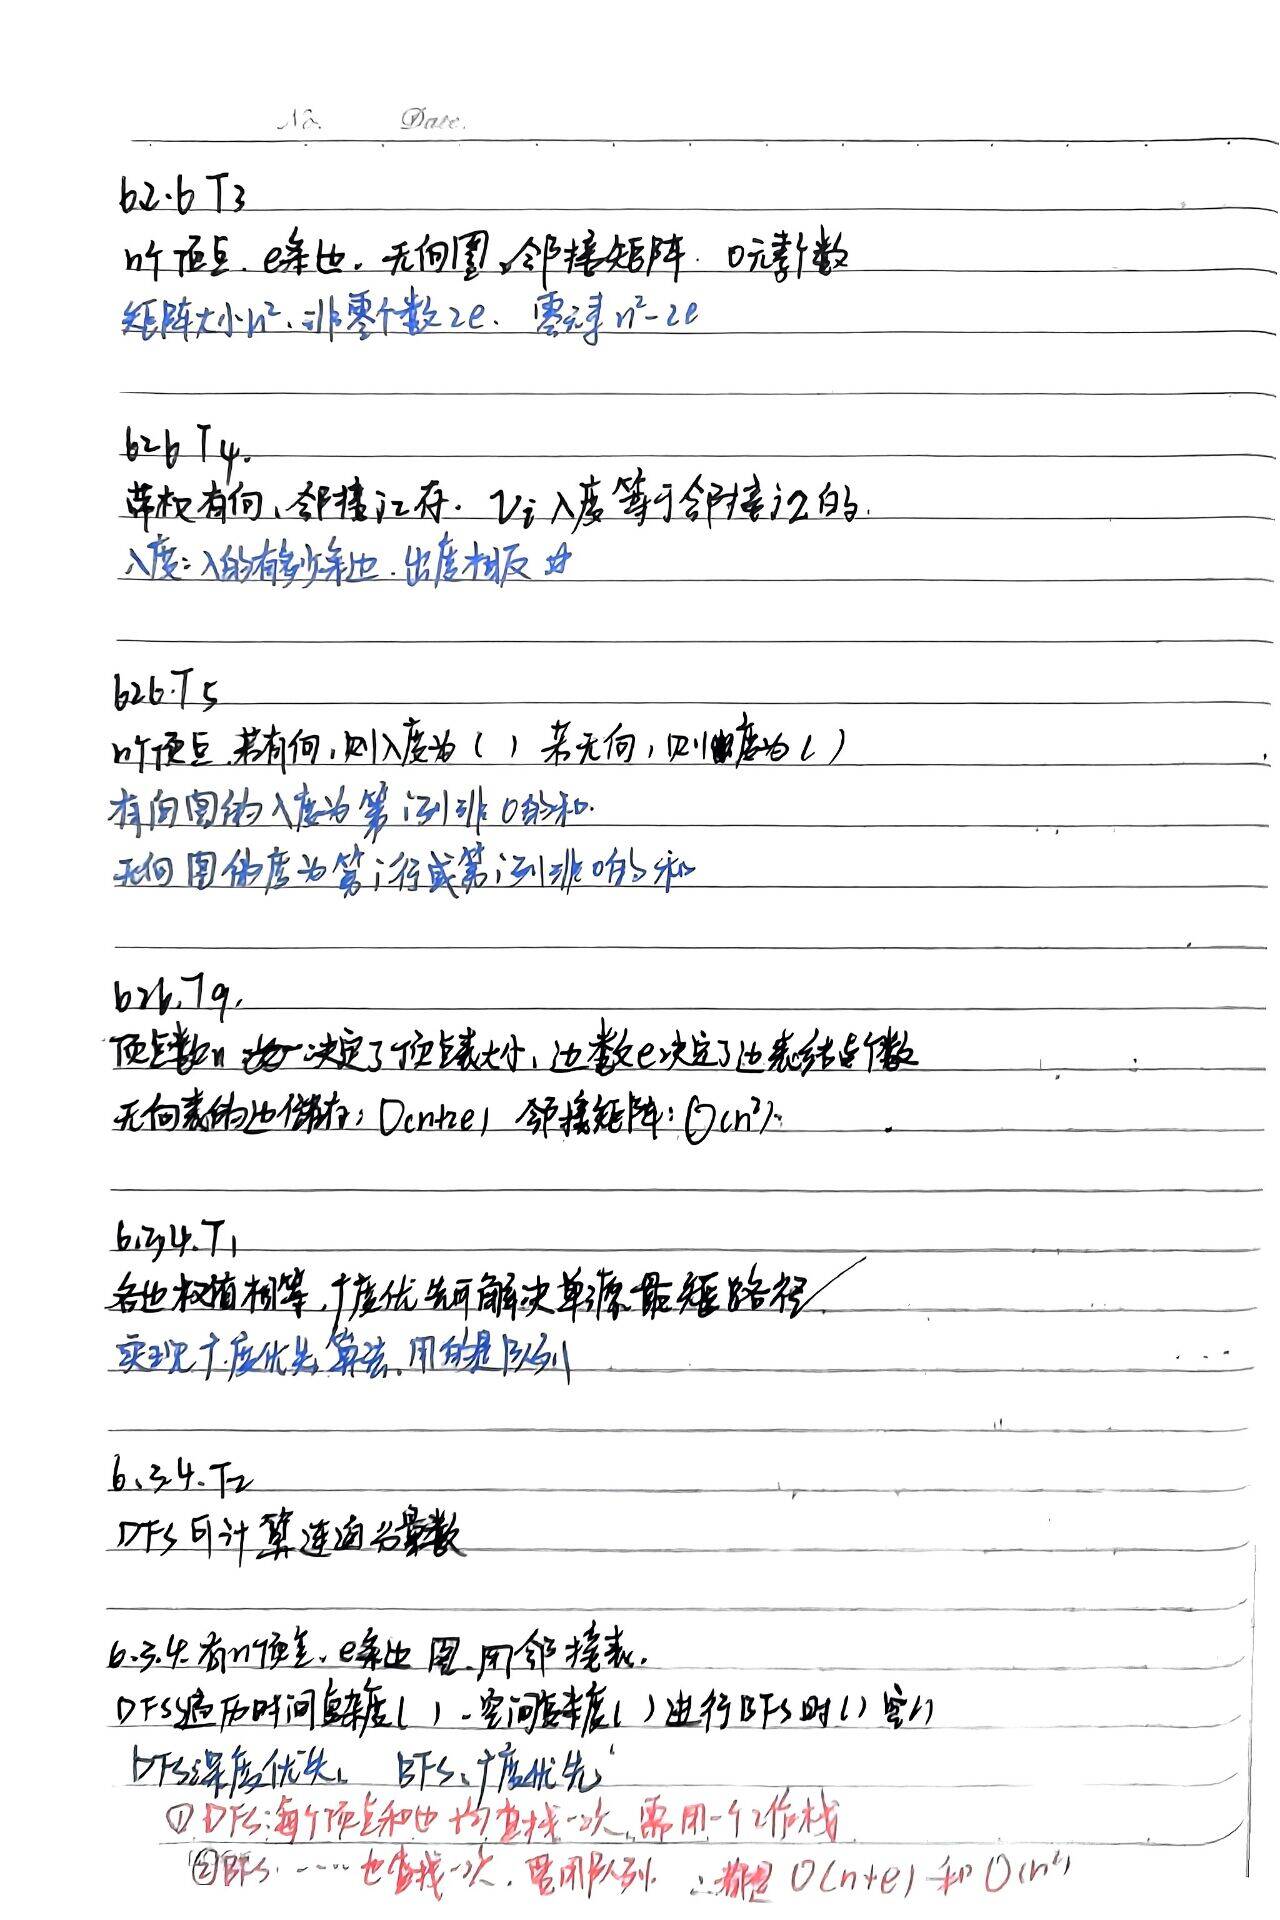 No. Date.
626 T3
n个顶点.e条边.无向图,邻接矩阵.0元素个数
矩阵大小n²、非零个数2e.零元素n²-2e
626 T4.
带权有向、邻接记存.Vi入度等于邻接记的.
入度:入的有多少条边.出度相反
626.T5
n个顶点.若有向,则入度为( ) 若无向,则度为( )
有向图的入度为第i列非0的和.
无向图的度为第i行或第i列非0的和
626.T9.
顶点数n 决定了顶点表大小,边数e决定了边表结点个数
无向表的边储存:O(n+2e) 邻接矩阵:O(n²).
6.3.4.T1
各边权值相等,广度优先可解决单源最短路径
实现广度优先算法,用的是队列
6.3.4.T2
DFS可计算连通分量数
6.3.4.有n顶点、e条边图.用邻接表.
DFS遍历时间复杂度( ).空间复杂度( )进行BFS时( )空( )
DFS:深度优先、 BFS、广度优先
①DFS:每个顶点和边均查找一次,需用一个工作栈
②BFS……也查找一次,需用队列.∴都是O(n+e)和O(n)